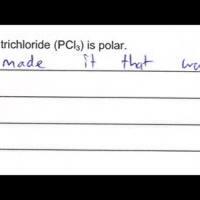 trichloride (PCl₃) is polar.
made it that